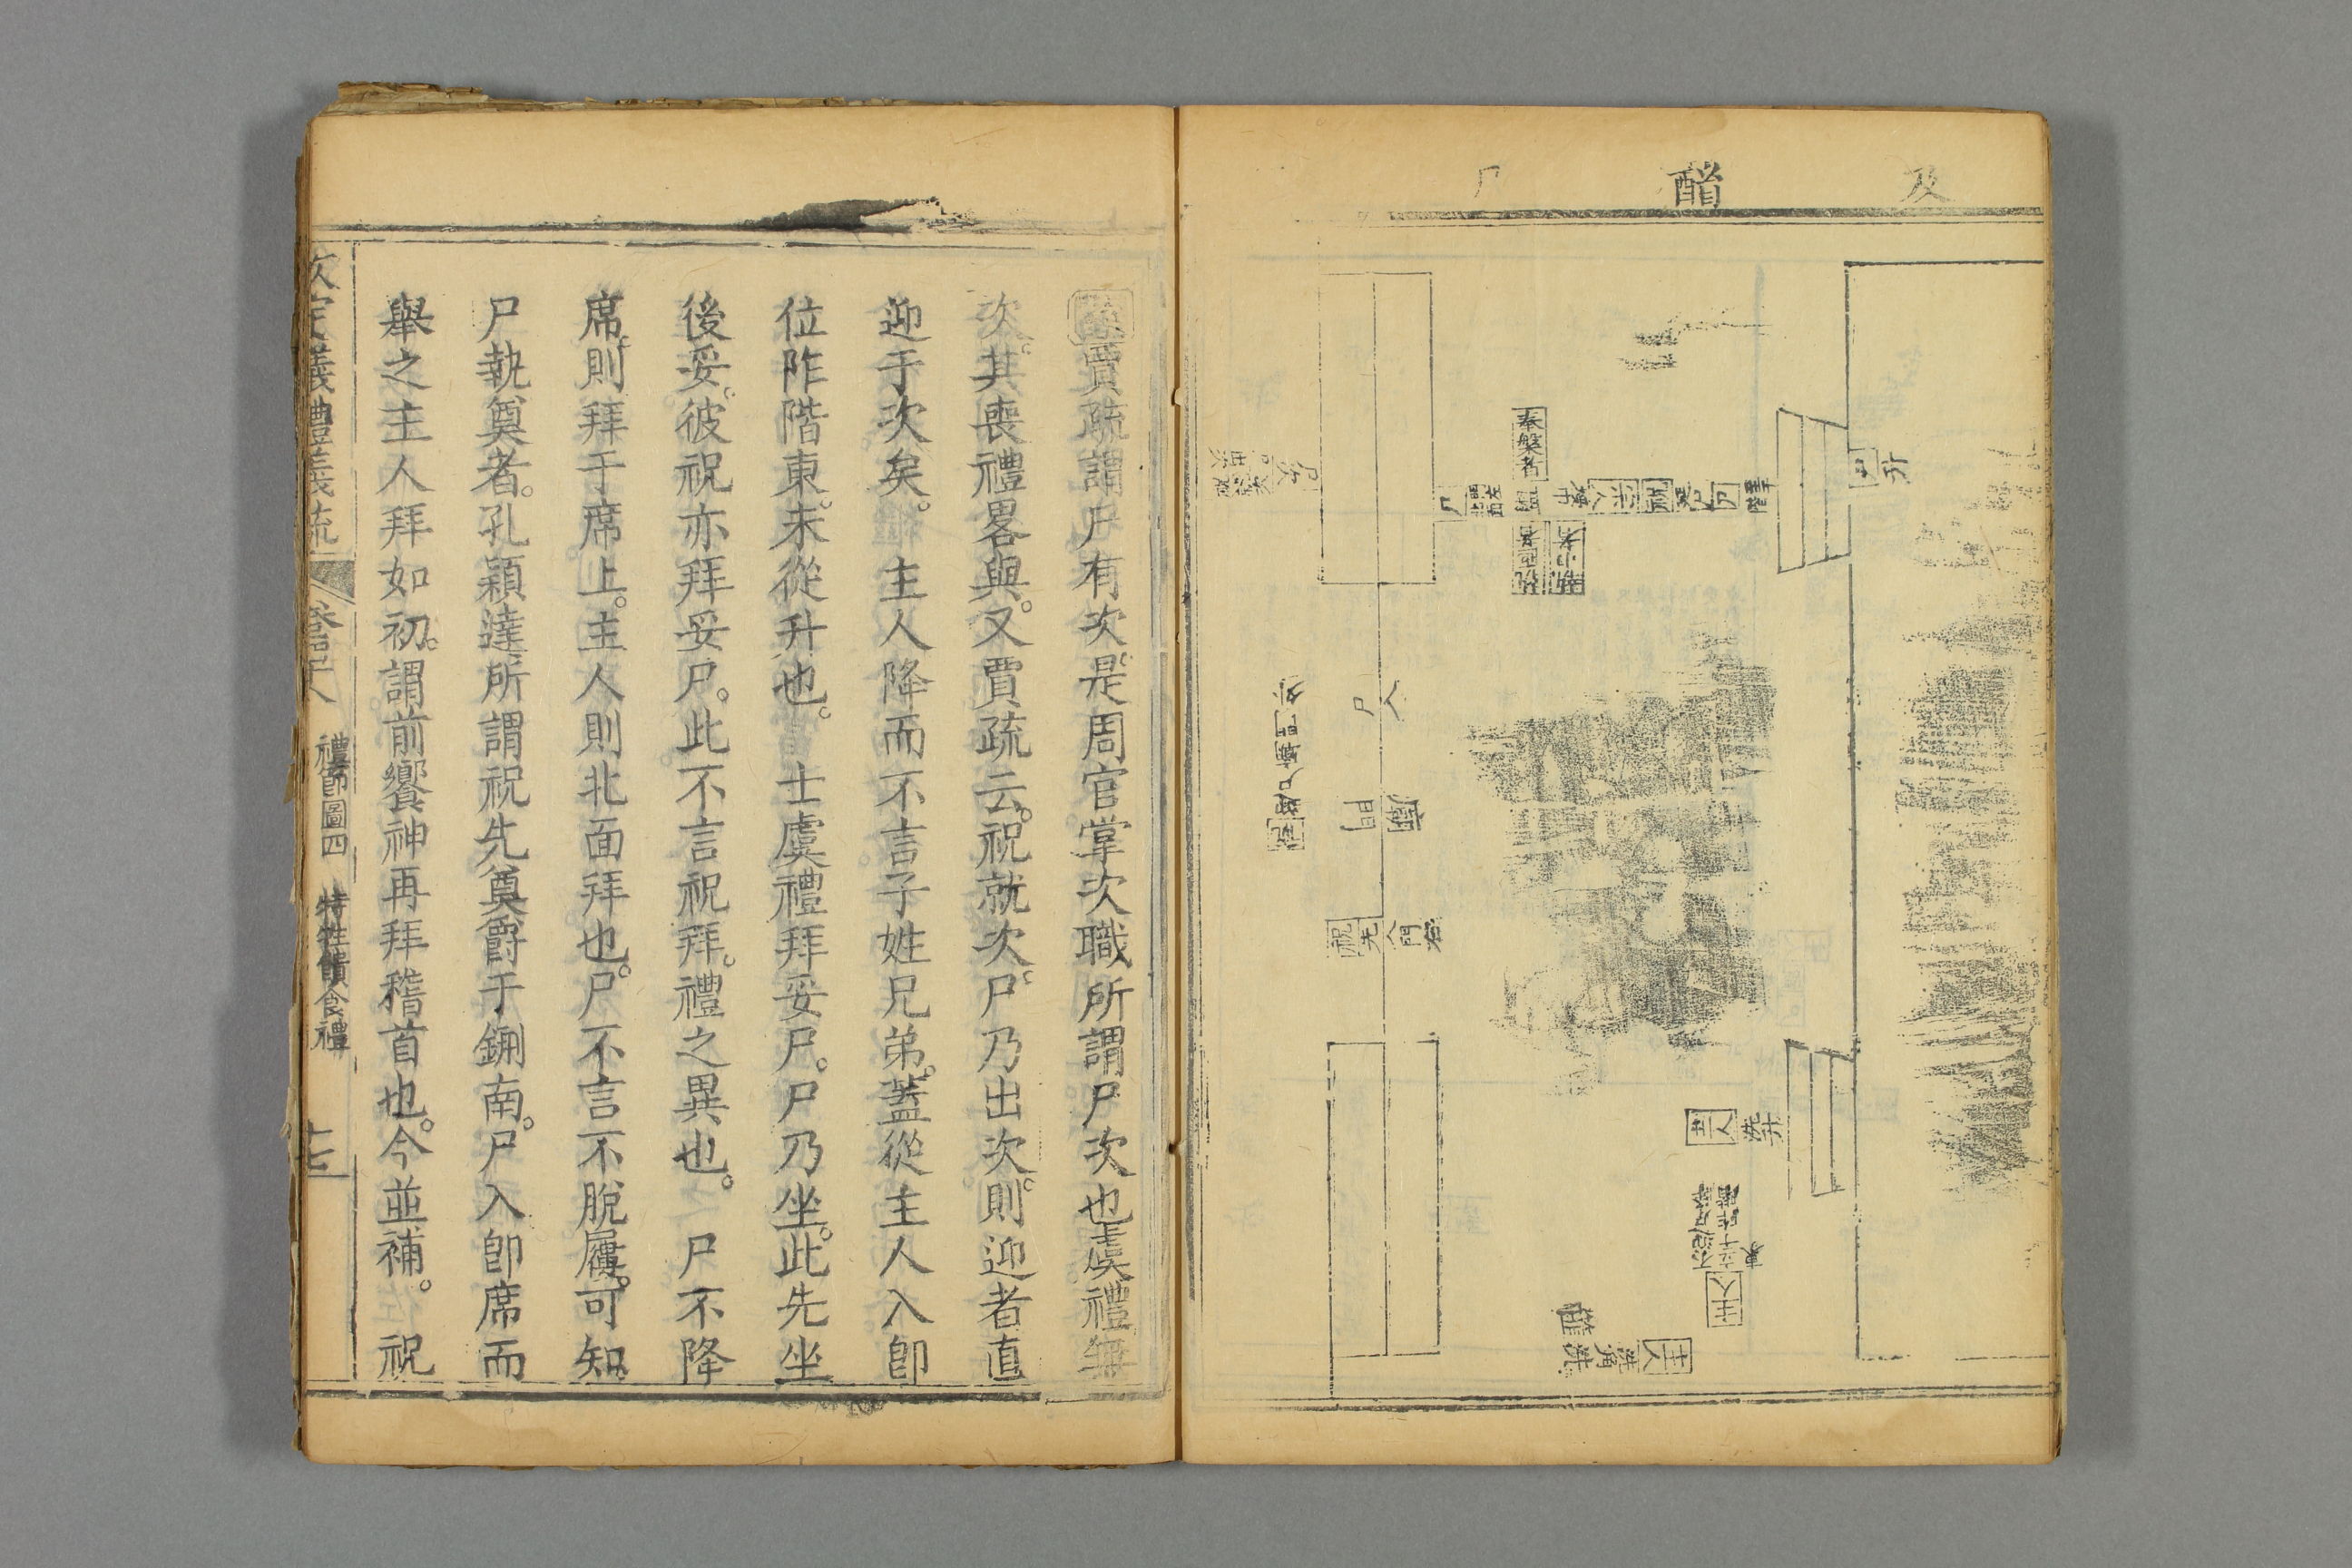 及
醋
尸
升
升
洗
主人
主人
東
主人
洗角
奉槃者
廟
門
尸入
祝先入門右
賈疏謂尸有次是周官掌次職所謂尸次也士虞禮無
次。其喪禮畧與。又賈疏云。祝就次。尸乃出次。則迎者直
迎于次矣。 主人降而不言子姓兄弟。蓋從主人入卽
位阼階東。未從升也。 士虞禮拜妥尸。尸乃坐。此先坐
後妥。彼祝亦拜妥尸。此不言祝拜。禮之異也。 尸不降
席。則拜于席上。主人則北面拜也。尸不言不脫屨。可知
尸執奠者。孔穎達所謂祝先奠爵于鉶南。尸入卽席而
舉之主人拜如初。謂前饗神再拜稽首也。今並補。 祝
欽定儀禮義疏 卷四十八 禮節圖四 特牲饋食禮 十七